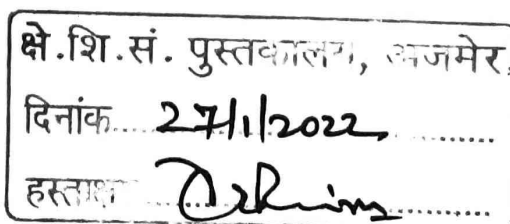 क्षे.शि.सं. पुस्तकालय, अजमेर,
दिनांक.... 27/1/2022 ......
हस्ताक्षर